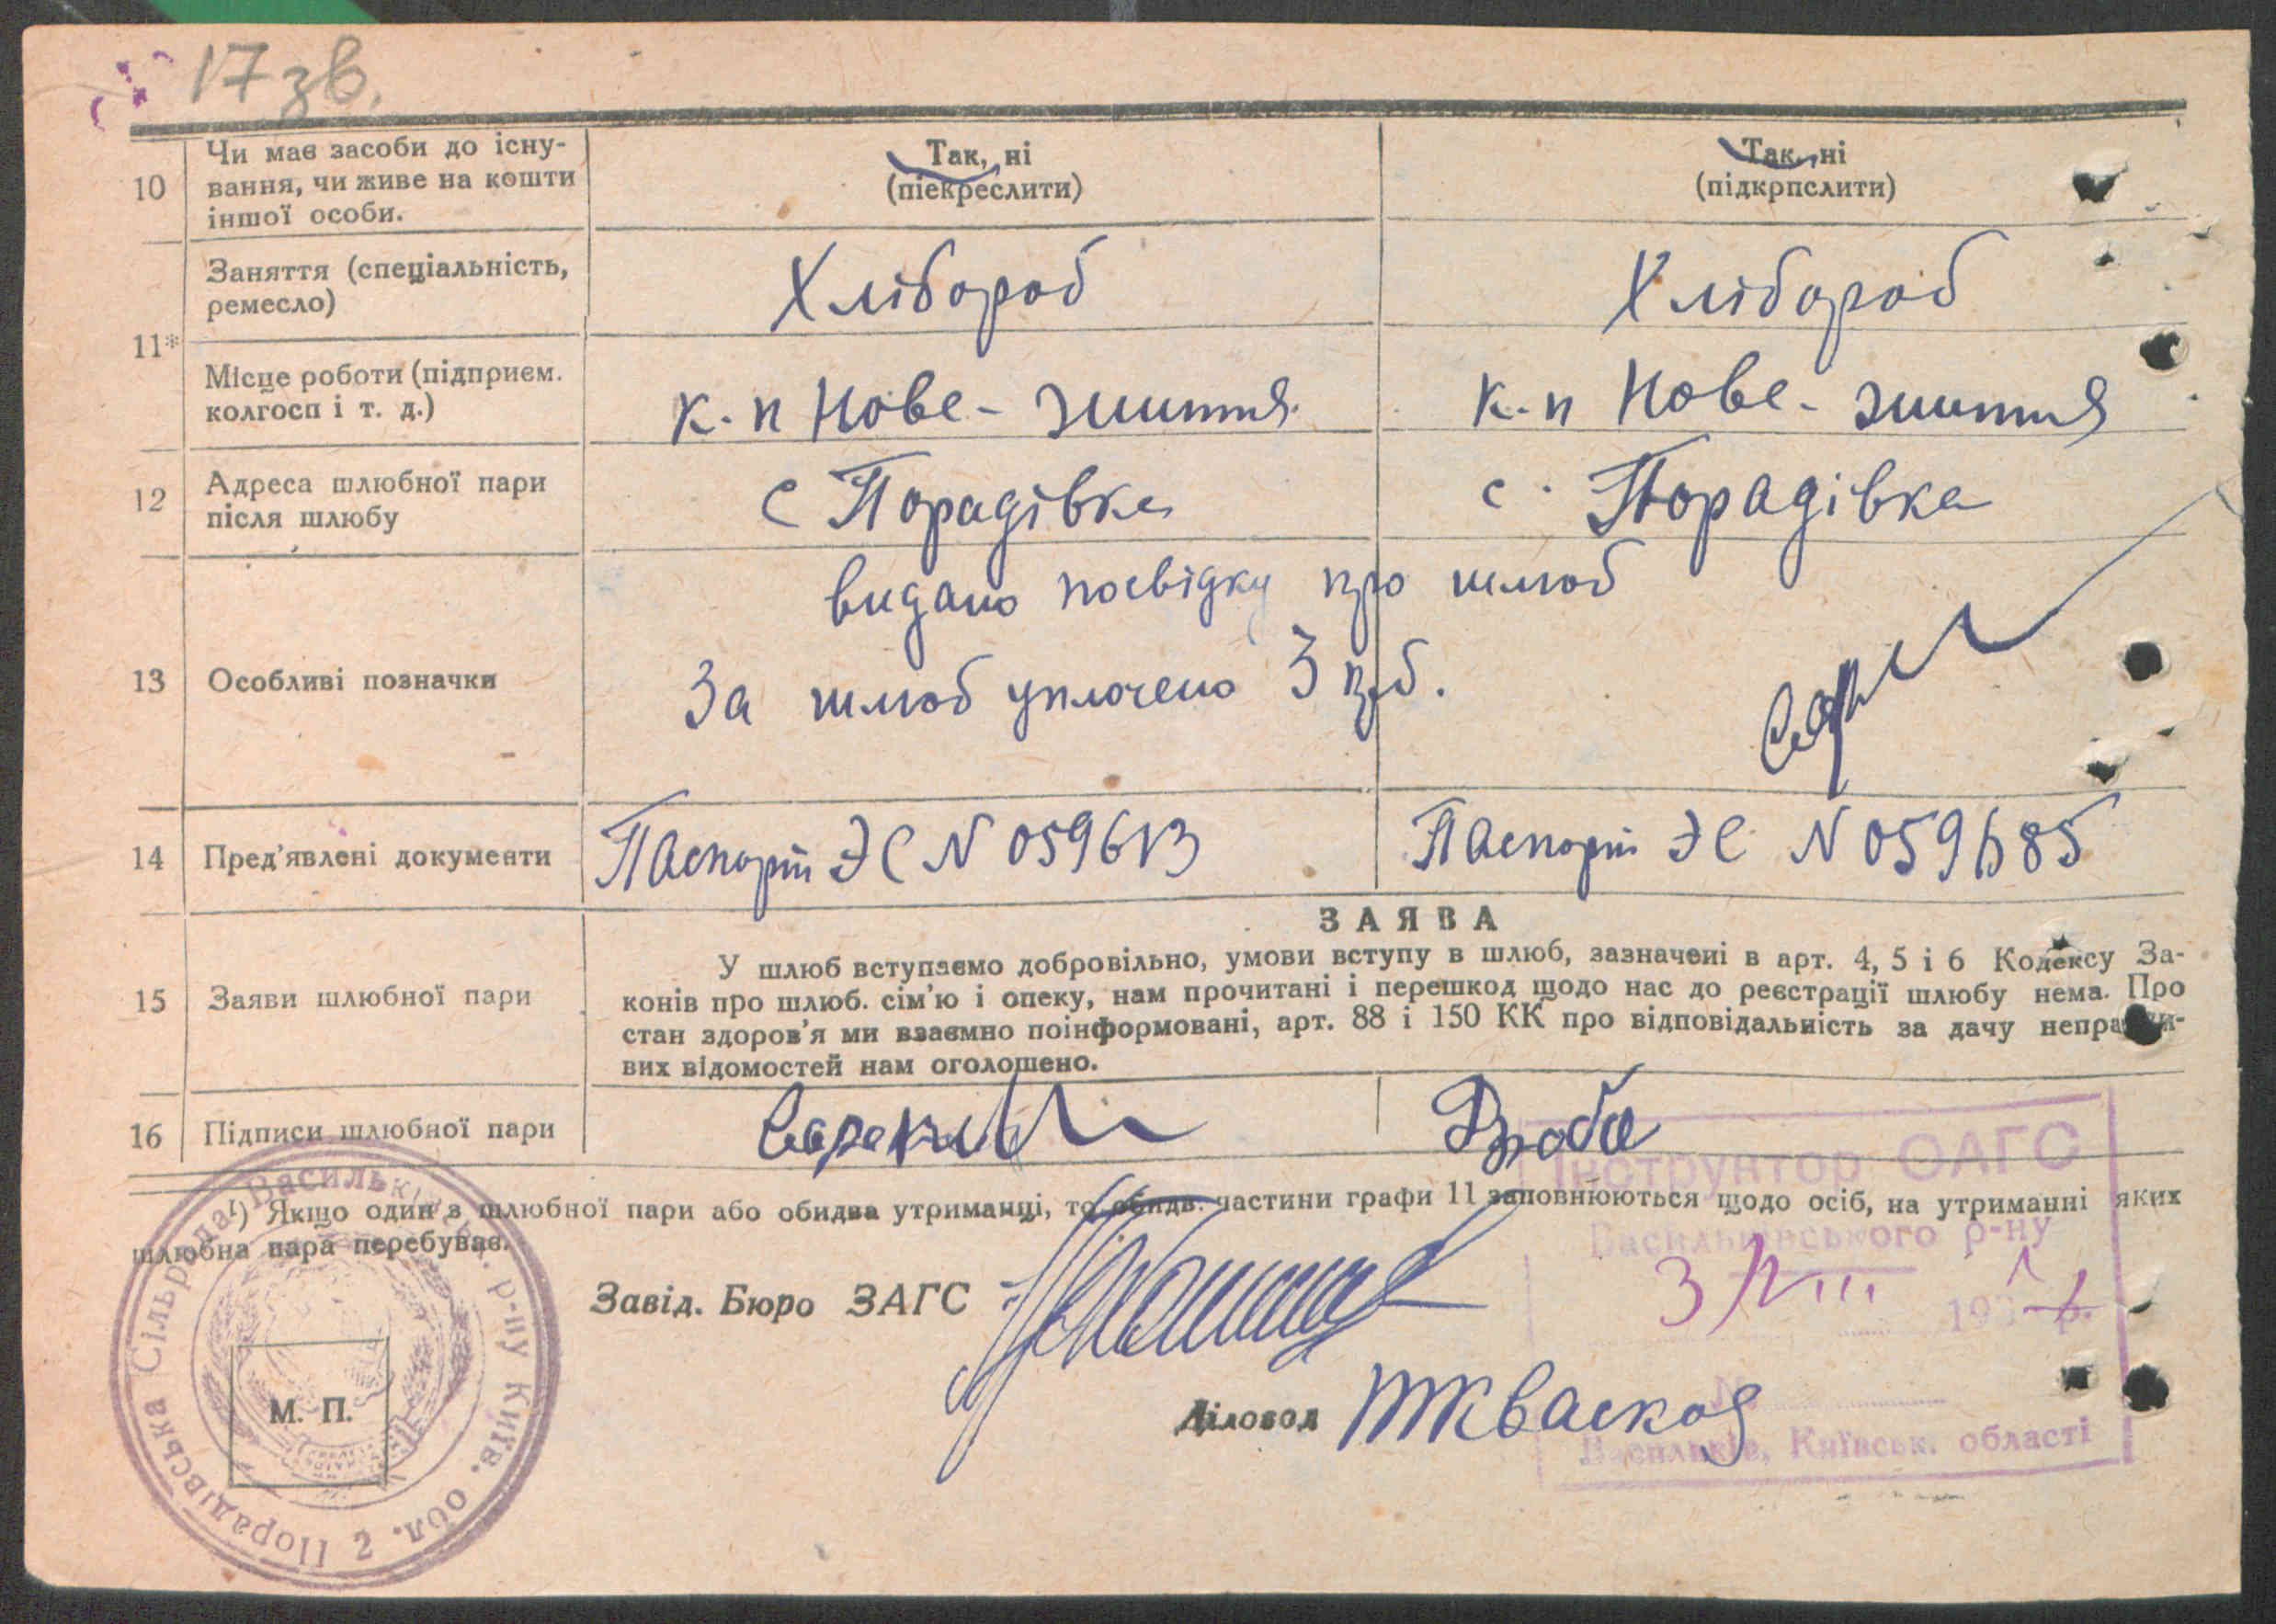 17 зв.
10
Чи має засоби до існу-
вання, чи живе на кошти
іншої особи.
Так, ні
(піекреслити)
Так, ні
(підкрпслити)
11*
Заняття (спеціальність,
ремесло)
Хлібороб
Хлібороб
Місце роботи (підприєм.
колгосп і т. д.)
к-п Нове-життя
к-п Нове-життя
12
Адреса шлюбної пари
після шлюбу
с Порадівка
с. Порадівка
13
Особливі позначки
видано посвідку про шлюб
За шлюб уплочено 3 крб.
14
Пред'явлені документи
Паспорт ЭС N 059613
Паспорт ЭС N 059685
15
Заяви шлюбної пари
ЗАЯВА
У шлюб вступаємо добровільно, умови вступу в шлюб, зазначені в арт. 4, 5 і 6 Кодексу За-
конів про шлюб. сім'ю і опеку, нам прочитані і перешкод щодо нас до реєстрації шлюбу нема. Про
стан здоров'я ми взаємно поінформовані, арт. 88 і 150 КК про відповідальність за дачу неправди-
вих відомостей нам оголошено.
16
Підписи шлюбної пари
¹) Якщо один з шлюбної пари або обидва утриманці, то обидв. частини графи 11 заповнюються щодо осіб, на утриманні яких
шлюбна пара перебуває.
Завід. Бюро ЗАГС
Діловод
М. П.
Порадівська Сільрада Васильківськ. р-ну Київ. обл.
Інструктор ОАГС
Васильківського р-ну
3/VIII 193 р.
№
Васильків, Київськ. області